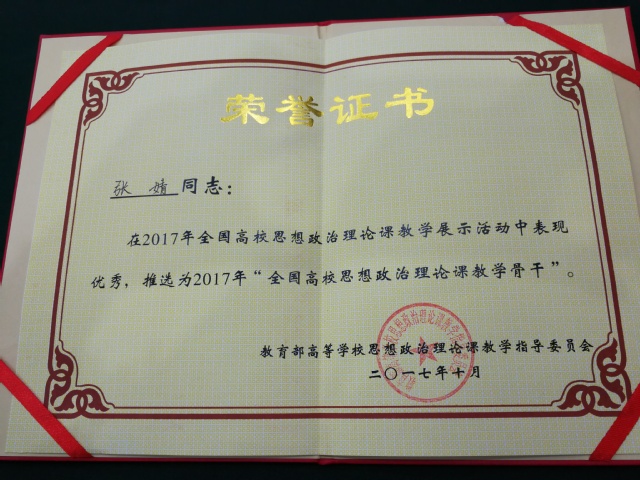 荣誉证书
张婧同志：
在2017年全国高校思想政治理论课教学展示活动中表现
优秀，推选为2017年“全国高校思想政治理论课教学骨干”。
教育部高等学校思想政治理论课教学指导委员会
二〇一七年十月